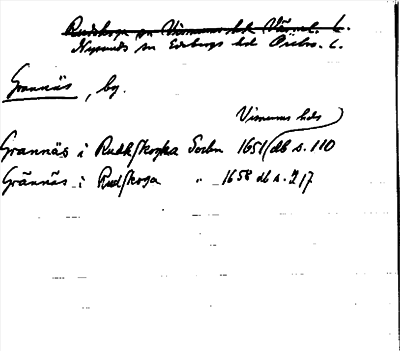 Rudskoga sn Visnums hd Värml. l.
Nysunds sn Edsbergs hd Örebro. l.
Grannäs, by.
Visnums hds
Grannäs i Rudkskogha Sochn 1651 db s. 110
Grännäs i Rudskoga " 1658 db s. 717